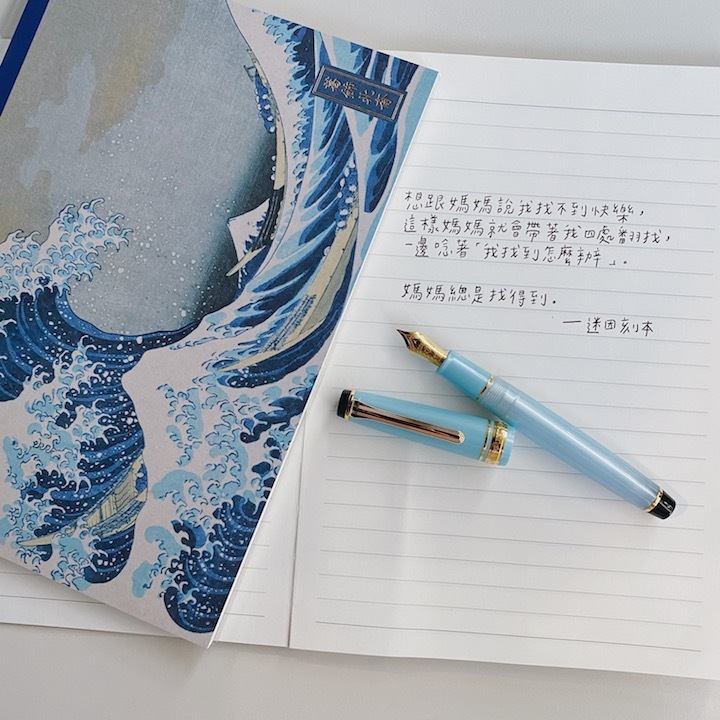 葛飾北斎
想跟媽媽說我找不到快樂，
這樣媽媽就會帶著我四處翻找，
一邊唸著「我找到怎麼辦」。
媽媽總是找得到.
—迷因刻本